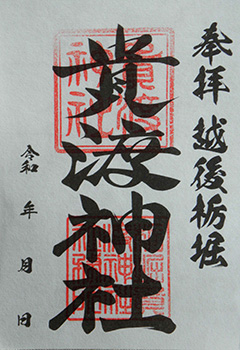 奉拝 越後栃堀
貴渡神社
令和 年 月 日